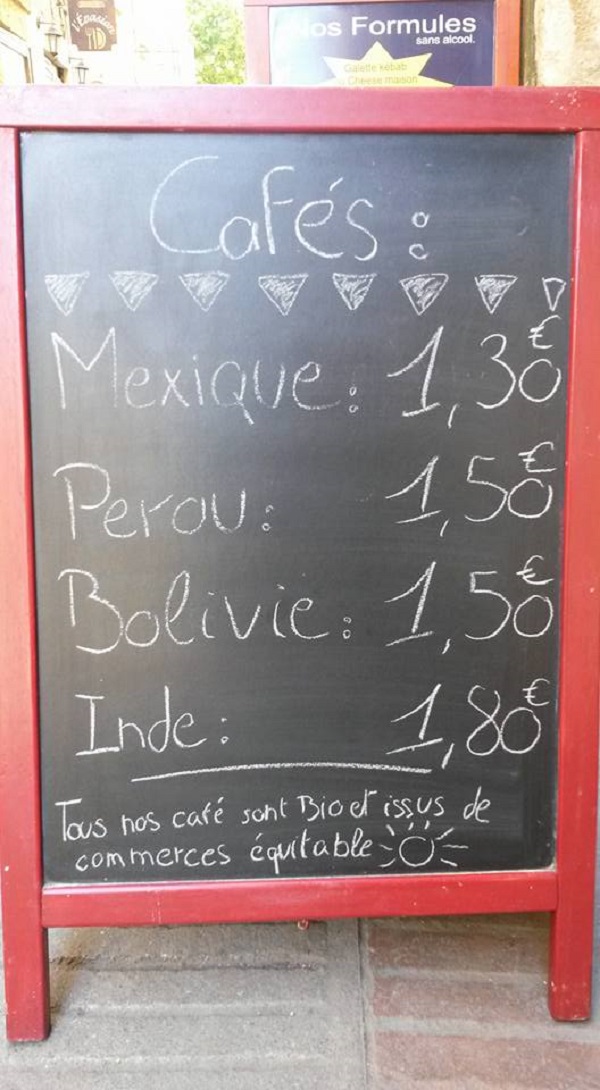 l'Evasion
Nos Formules
sans alcool.
Galette kebab
Cheese maison
Cafés :
Mexique : 1,30€
Perou : 1,50€
Bolivie : 1,50€
Inde : 1,80€
Tous nos café sont Bio et issus de
commerces équitable